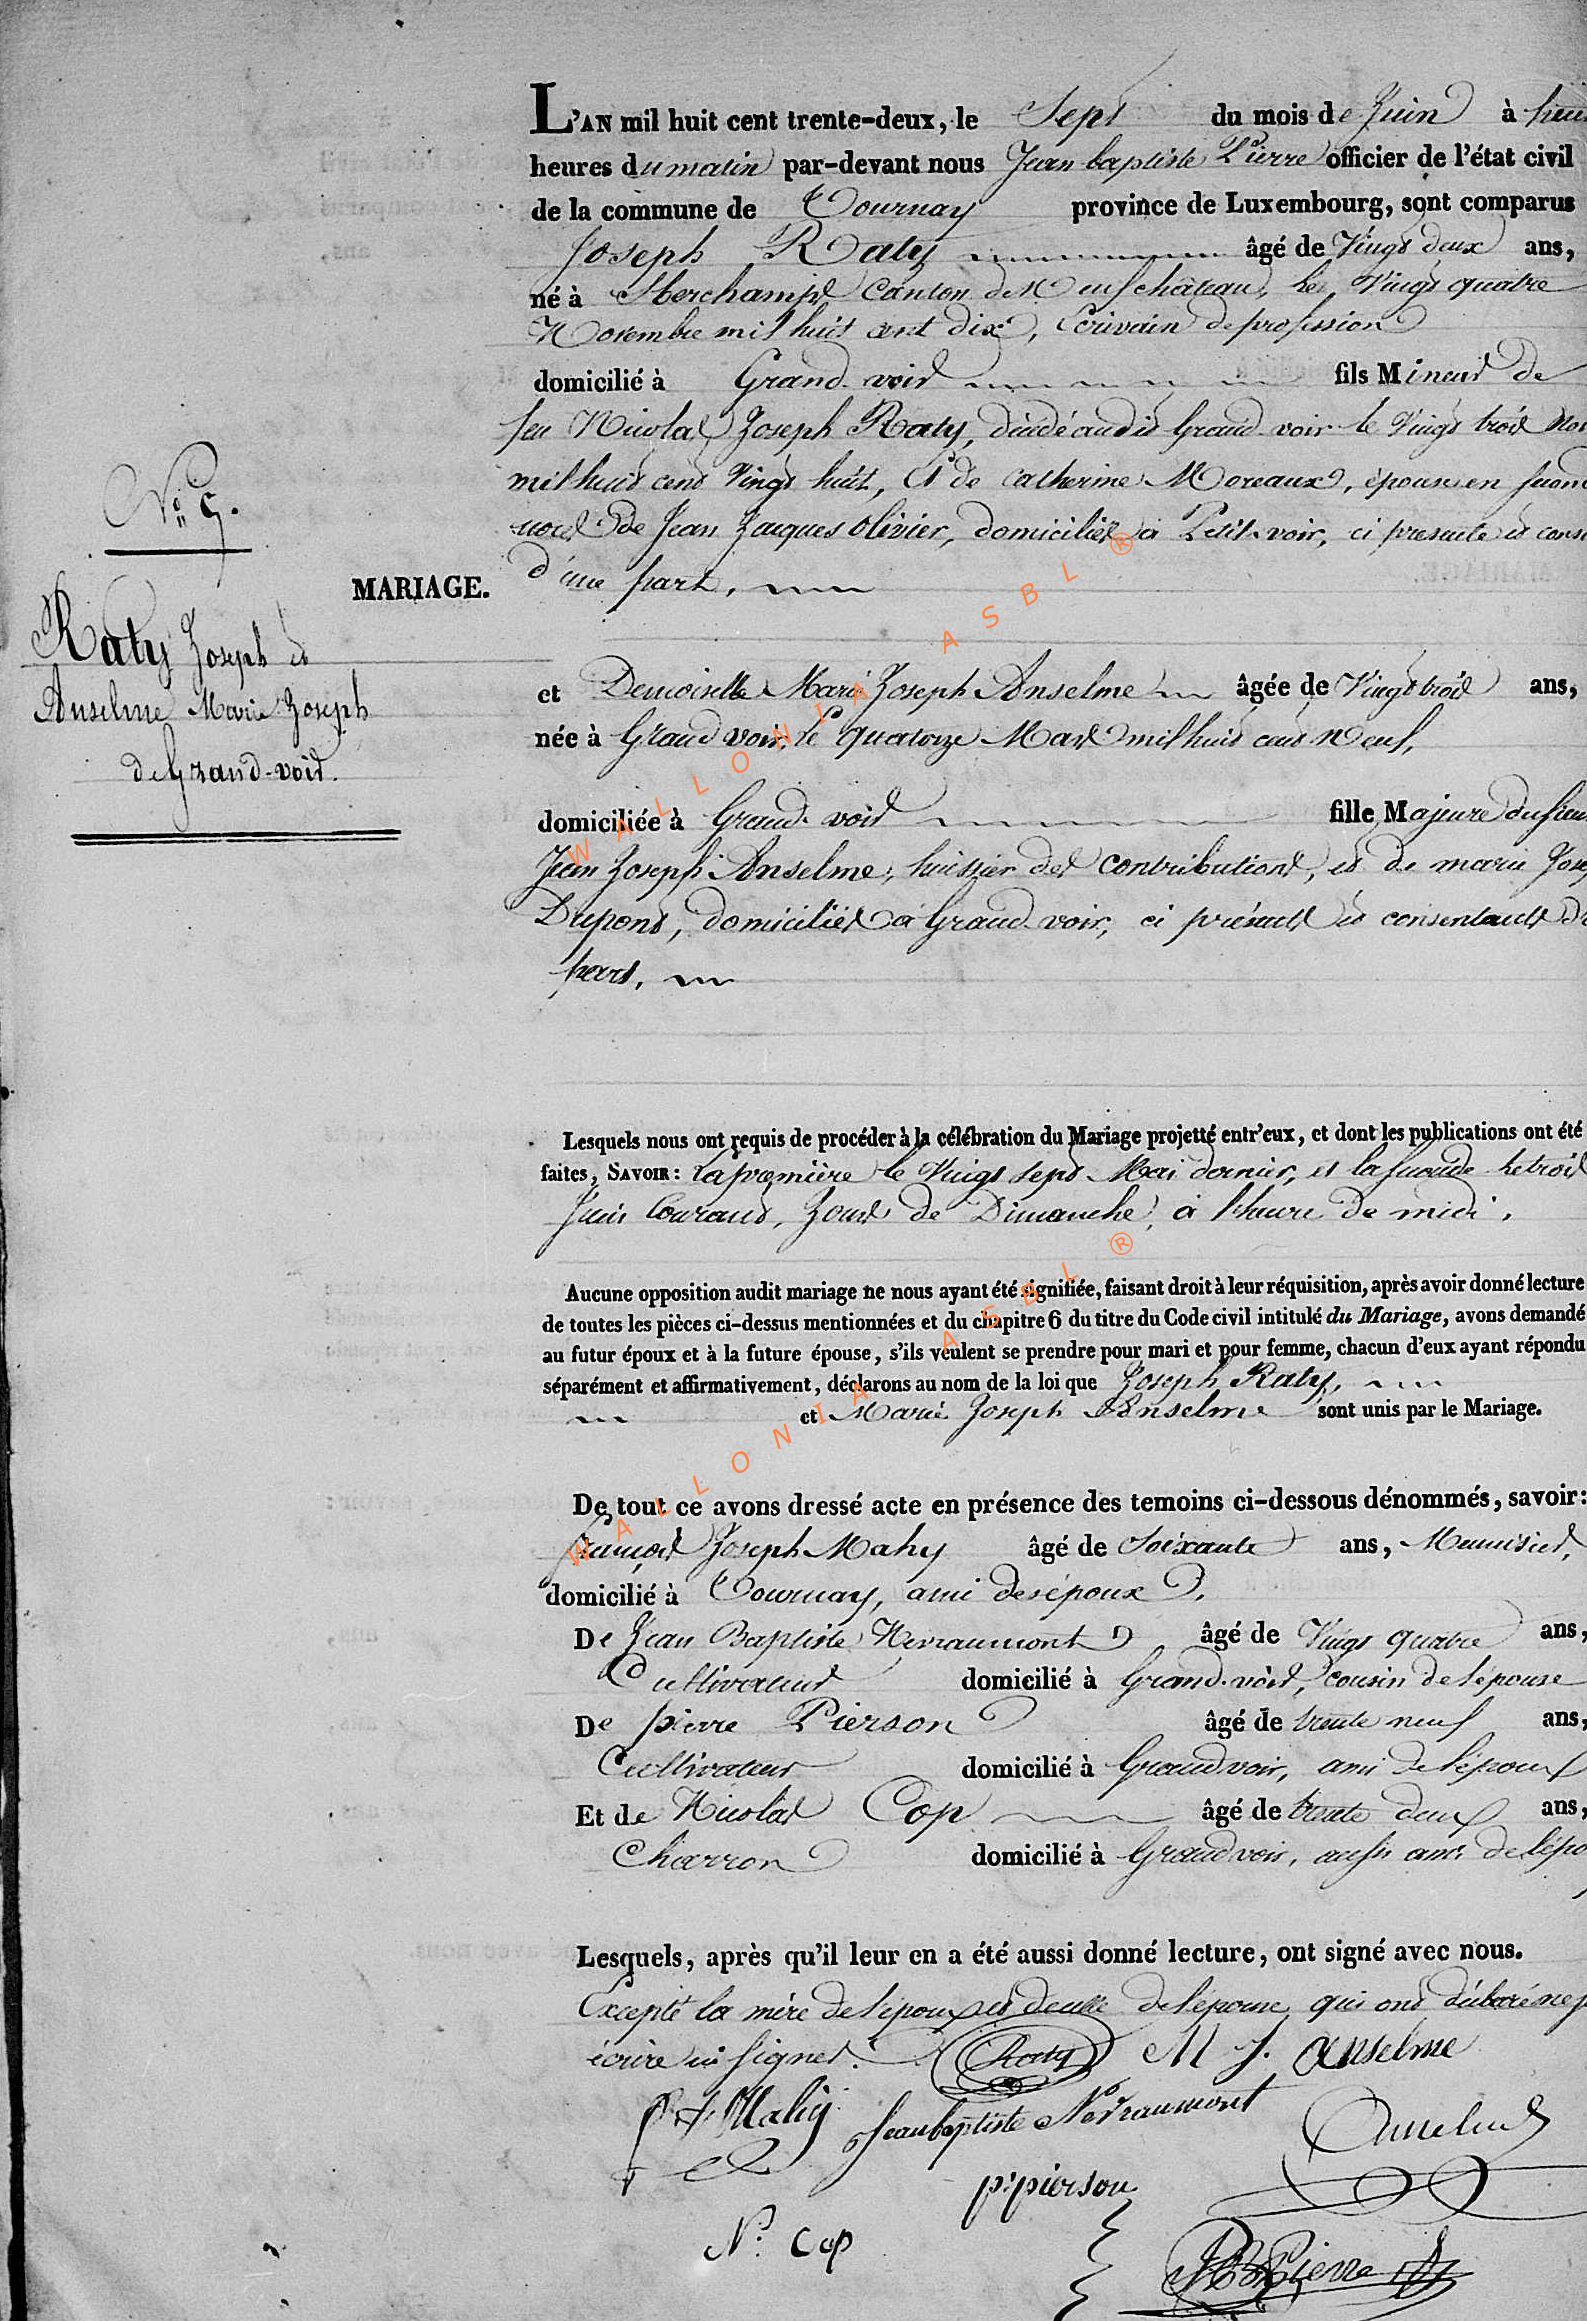 L'AN mil huit cent trente-deux, le Sept du mois de Juin à huit
heures du matin par-devant nous Jean baptiste Pierre officier de l'état civil
de la commune de Tournay province de Luxembourg, sont comparus
Joseph Raty âgé de Vingt deux ans,
né à Herchamps Canton de Neufchâteau, le Vingt quatre
Novembre mil huit cent dix, Ecrivain de profession
domicilié à Grand-voir fils Mineur de
feu Nicolas Joseph Raty, décédé audit Grand-voir le Vingt trois Nov
mil huit cent Vingt huit, et de Catherine Moreaux, épouse en second
noces de Jean Jacques Olivier, domiciliés à Petit-voir, ci presente et cons
d'une part,
N° 5.
MARIAGE.
Raty Joseph et
Anselme Marie Joseph
de Grand-voir.
et Demoiselle Marie Joseph Anselme âgée de Vingt trois ans,
née à Grand voir, le quatorze Mars mil huit cent Neuf,
domiciliée à Grand-voir fille Majeure du sieur
Jean Joseph Anselme, huissier des Contributions, et de marie Jose
Dupont, domiciliés à Grand-voir, ci présents et consentants d'
part,
Lesquels nous ont requis de procéder à la célébration du Mariage projetté entr'eux, et dont les publications ont été
faites, SAVOIR: la première le Vingt sept Mai dernier, et la seconde le trois
Juin Courant, Jours de Dimanche, à l'heure de midi.
Aucune opposition audit mariage ne nous ayant été signifiée, faisant droit à leur réquisition, après avoir donné lecture
de toutes les pièces ci-dessus mentionnées et du chapitre 6 du titre du Code civil intitulé du Mariage, avons demandé
au futur époux et à la future épouse, s'ils veulent se prendre pour mari et pour femme, chacun d'eux ayant répondu
séparément et affirmativement, déclarons au nom de la loi que Joseph Raty,
et Marie Joseph Anselme sont unis par le Mariage.
De tout ce avons dressé acte en présence des temoins ci-dessous dénommés, savoir:
François Joseph Mahy âgé de Soixante ans, Menuisier,
domicilié à Tournay, ami des époux.
De Jean Baptiste Nevraumont âgé de Vingt quatre ans,
Cultivateur domicilié à Grand-voir, cousin de l'épouse
De pierre Pierson âgé de trente neuf ans,
Cultivateur domicilié à Grandvoir, ami de l'époux
Et de Nicolas Cop âgé de trente deux ans,
Charron domicilié à Grandvoir, aussi ami de l'épo
Lesquels, après qu'il leur en a été aussi donné lecture, ont signé avec nous.
Excepté la mère de l'époux et de celle de l'épouse qui ont déclaré ne p
écrire ni signer. Raty M J. Anselme
f J Mahy Jeanbaptiste Nevraumont Anselme
p: pierson
N: Cop JB Pierre
WALLONIA ASBL ®
WALLONIA ASBL ®